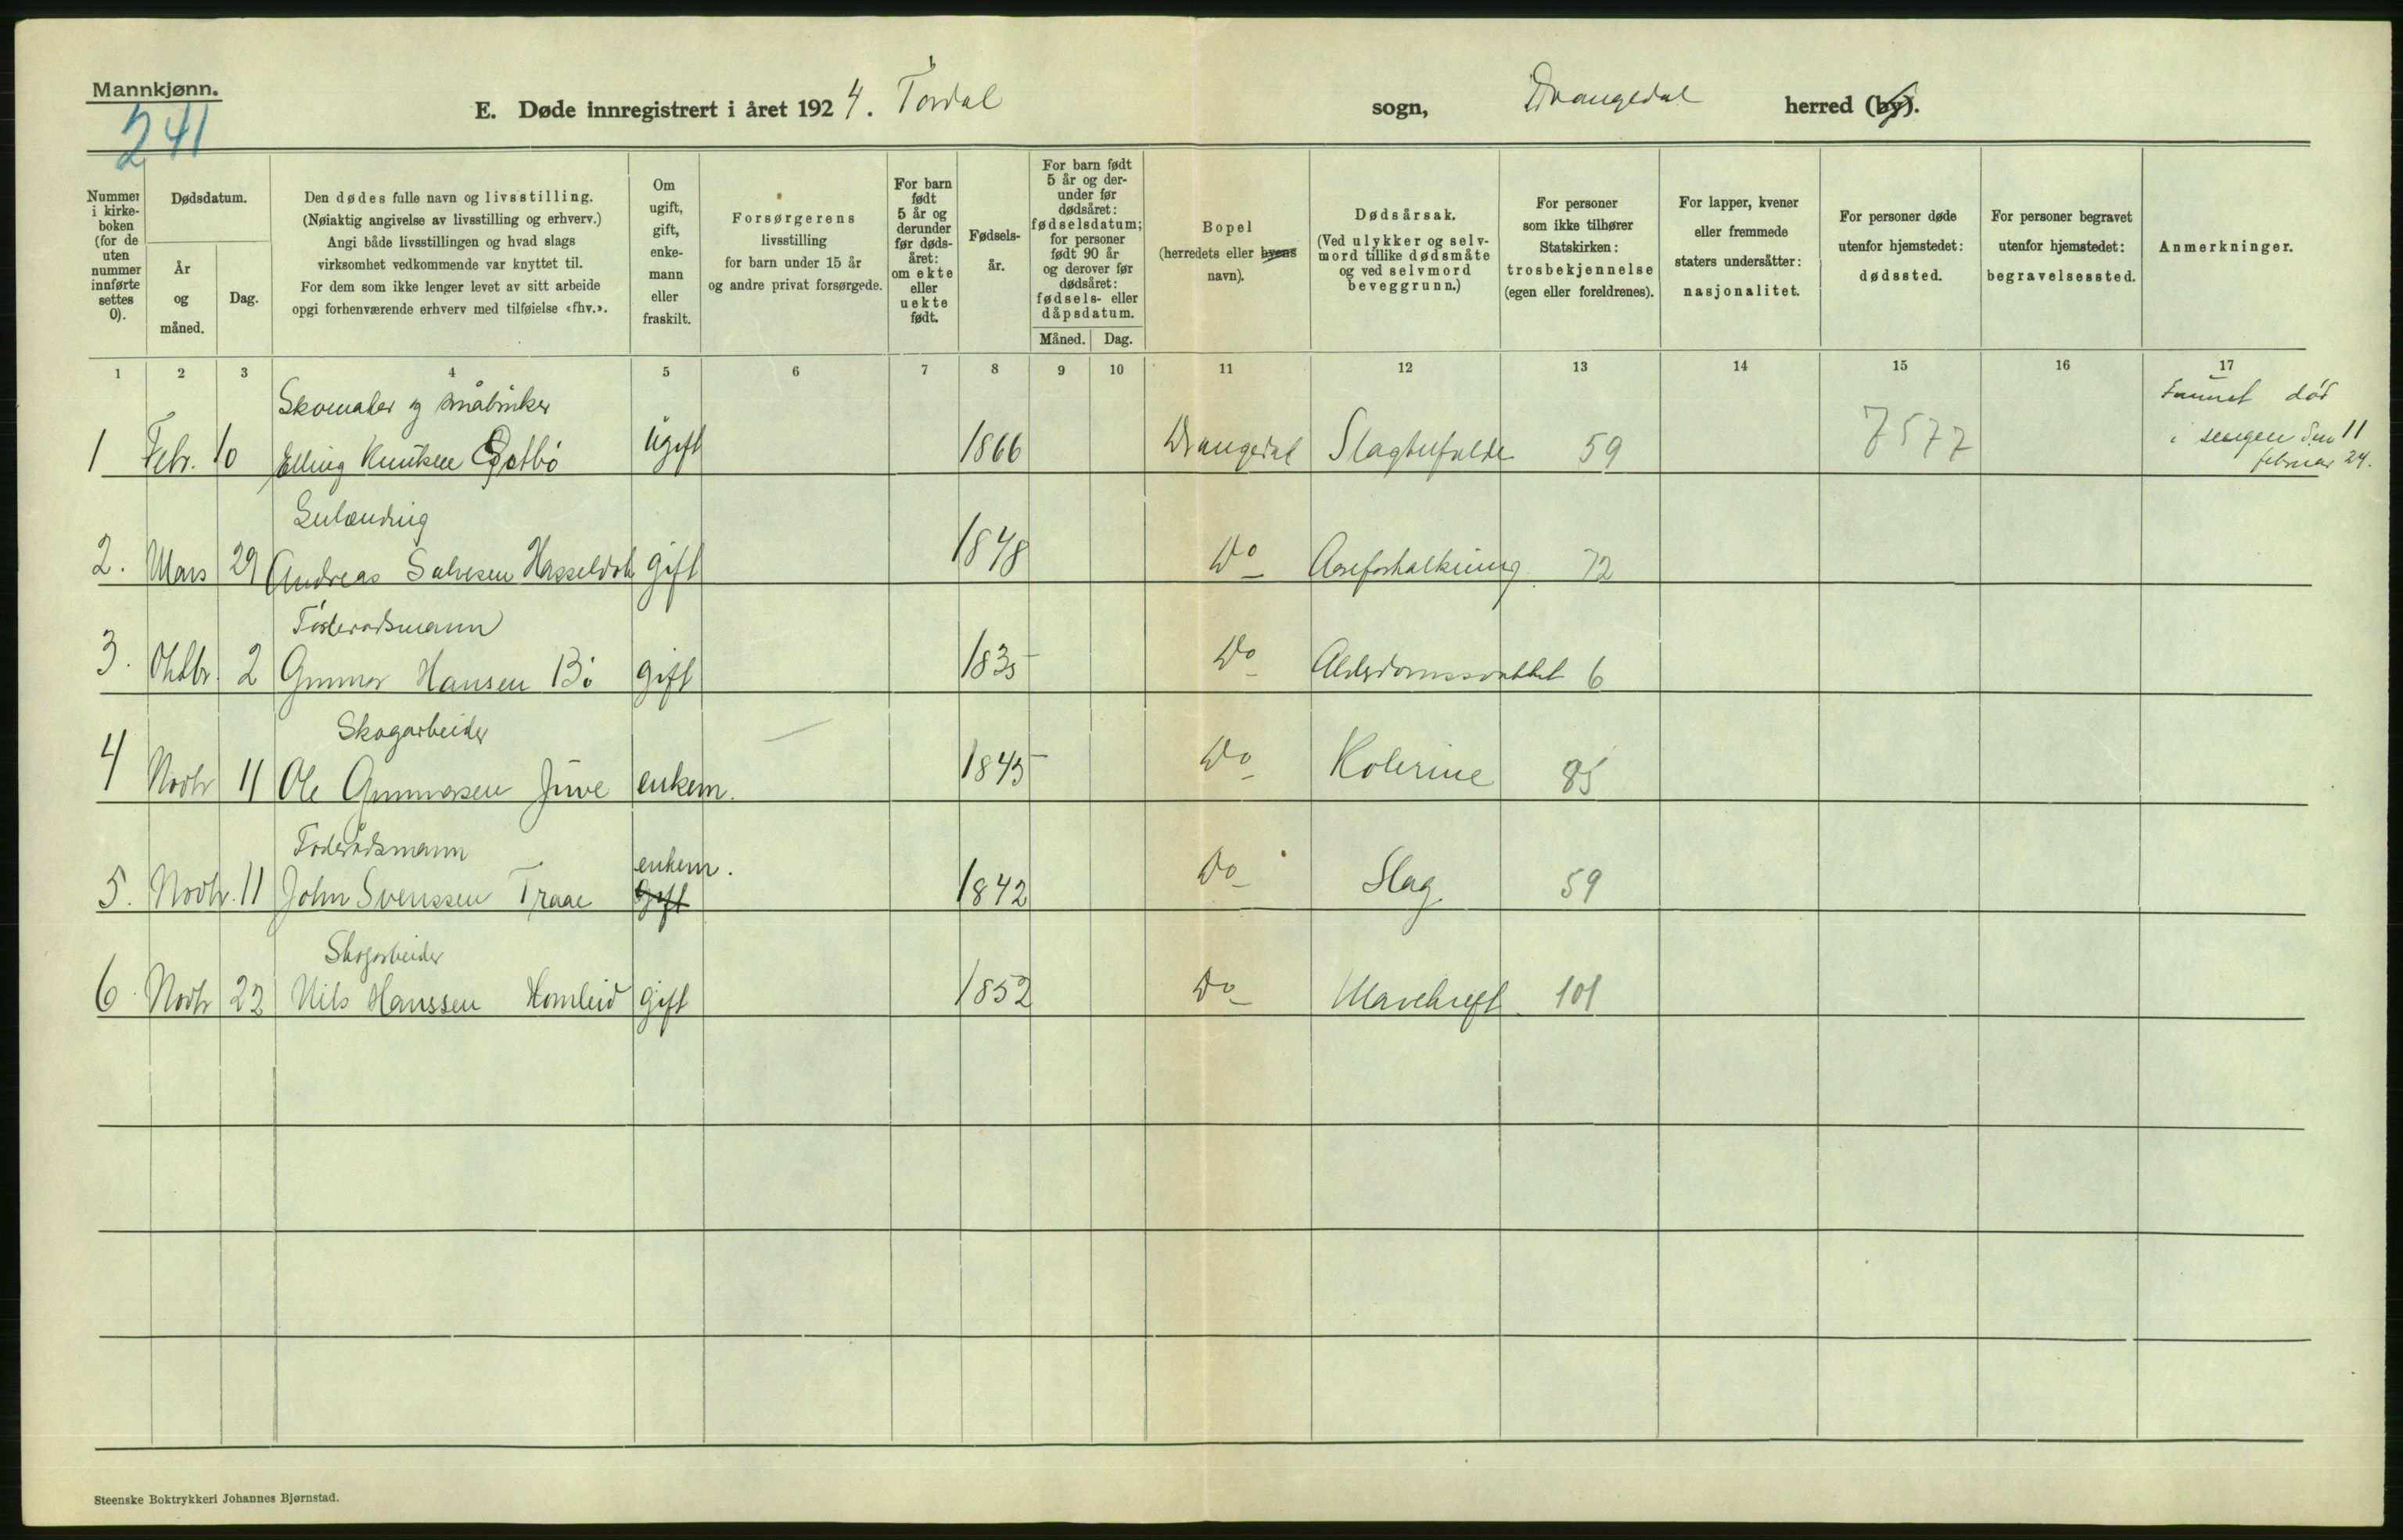 Mannkjønn.
241
E. Døde innregistrert i året 1924. Tørdal sogn, Drangedal herred (by).
Nummer i kirkeboken (for de uten nummer innførte settes 0).
Dødsdatum.
År og måned.
Dag.
Den dødes fulle navn og livsstilling.
(Nøiaktig angivelse av livsstilling og erhverv.)
Angi både livsstillingen og hvad slags
virksomhet vedkommende var knyttet til.
For dem som ikke lenger levet av sitt arbeide
opgi forhenværende erhverv med tilføielse «fhv.».
Om ugift, gift, enkemann eller fraskilt.
Forsørgerens
livsstilling
for barn under 15 år
og andre privat forsørgede.
For barn født 5 år og derunder før dødsåret: om ekte eller uekte født.
Fødselsår.
For barn født 5 år og derunder før dødsåret: fødselsdatum; for personer født 90 år og derover før dødsåret: fødsels- eller dåpsdatum.
Måned. Dag.
Bopel
(herredets eller byens
navn).
Dødsårsak.
(Ved ulykker og selvmord tillike dødsmåte og ved selvmord beveggrunn.)
For personer
som ikke tilhører
Statskirken:
trosbekjennelse
(egen eller foreldrenes).
For lapper, kvener
eller fremmede
staters undersåtter:
nasjonalitet.
For personer døde
utenfor hjemstedet:
dødssted.
For personer begravet
utenfor hjemstedet:
begravelsessted.
Anmerkninger.
1 2 3 4 5 6 7 8 9 10 11 12 13 14 15 16 17
Skomaker og småbruker
1 Febr. 10 Elling Knutsen ugift 1866 Drangedal Slagtilfelde 59 7577
Funnet død
i sengen den 11
februar 24.
2. Mars 29 Andreas Salvesen gift 1848 Do Aareforkalkning 72
Føderådsmann
3. Oktbr. 2 Gunnar Hansen Bø gift 1835 Do Alderdomssvakhet 6
Skogarbeider
4 Novbr 11 Ole Gunnarsen Juve enkem. 1845 Do Kolerine 85
Føderådsmann
enkem.
5. Novbr. 11 John Svenssen Traae Gift 1842 Do Slag 59
Skogarbeider
6 Novbr 22 Nils Hanssen Homleid gift 1852 Do Mavekreft 101
Steenske Boktrykkeri Johannes Bjørnstad.